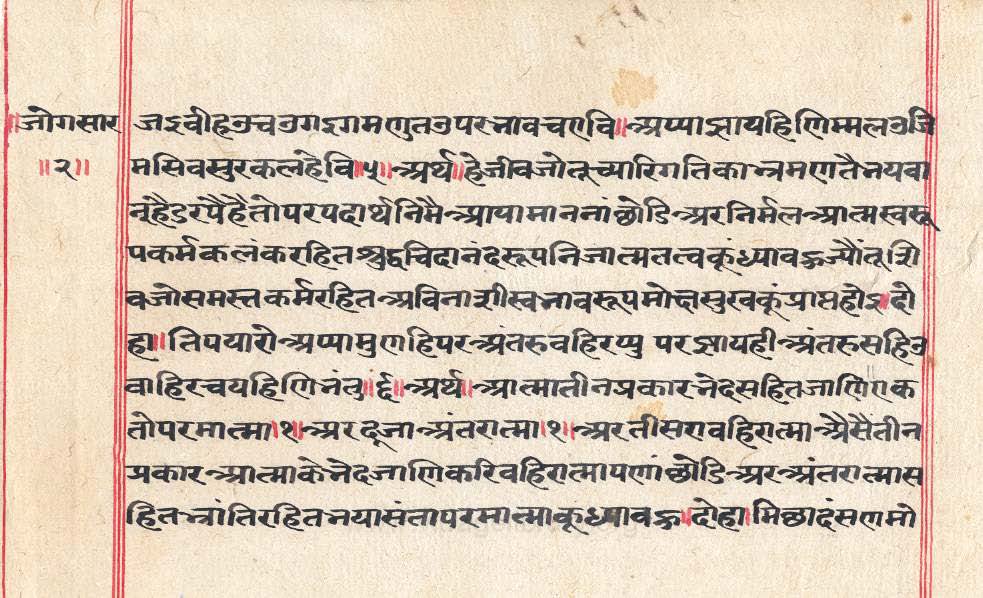 ॥जोगसार
॥२॥
जइवीहउचउगइगमणुतउपरभावचएवि॥अप्पाझायहिणिम्मलउजि
मसिवसुरकलहेवि॥५॥अर्थ॥हेजीवजोतूच्यारिगतिकाभ्रमणतैभयवा
नूहैडरपैहैतोपरपदार्थनिमैआपामाननांछोडिअरनिर्मलआत्मस्वरू
पकर्मकलंकरहितशुद्धचिदानंदरूपनिजात्मतत्वकूंध्यावहुज्यौंतूशि
वजोसमस्तकर्मरहितअविनाशीस्वभावरूपमोक्षसुखकूंप्राप्तहोइ॥दो
हा॥तिपयारोअप्पामुणहिपरअंतरुवहिरप्पु परझायहीअंतरुसहिउ
वाहिरचयहिणिभंतु॥६॥अर्थ॥आत्मातीनप्रकारभेदसहितजाणिएक
तोपरमात्मा॥१॥अरदूजाअंतरात्मा॥२॥अरतीसराबहिरात्माऐसैतीन
प्रकारआत्माकेभेदजाणिकरिवहिरात्मापणांछोडिअरअंतरात्मास
हितभ्रांतिरहितभयासंतापरमात्माकूंध्यावहु॥दोहा॥मिछादंसणमो